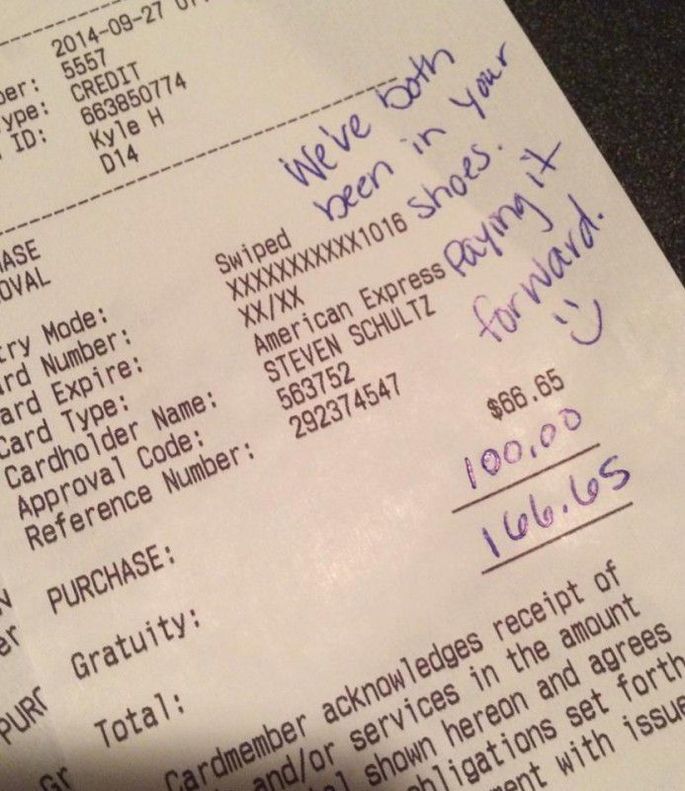 2014-09-27 07
ber: 5557
ype: CREDIT
ID: 663850774
Kyle H
D14
We've both
been in your
shoes.
Paying it
forward.
:)
HASE
OVAL
try Mode: Swiped
rd Number: XXXXXXXXXXX1016
ard Expire: XX/XX
Card Type: American Express
Cardholder Name: STEVEN SCHULTZ
Approval Code: 563752
Reference Number: 292374547
PURCHASE: $66.65
Gratuity: 100.00
Total: 166.65
Cardmember acknowledges receipt of
and/or services in the amount
shown hereon and agrees
obligations set forth
ment with issue
er
PURC
Gr